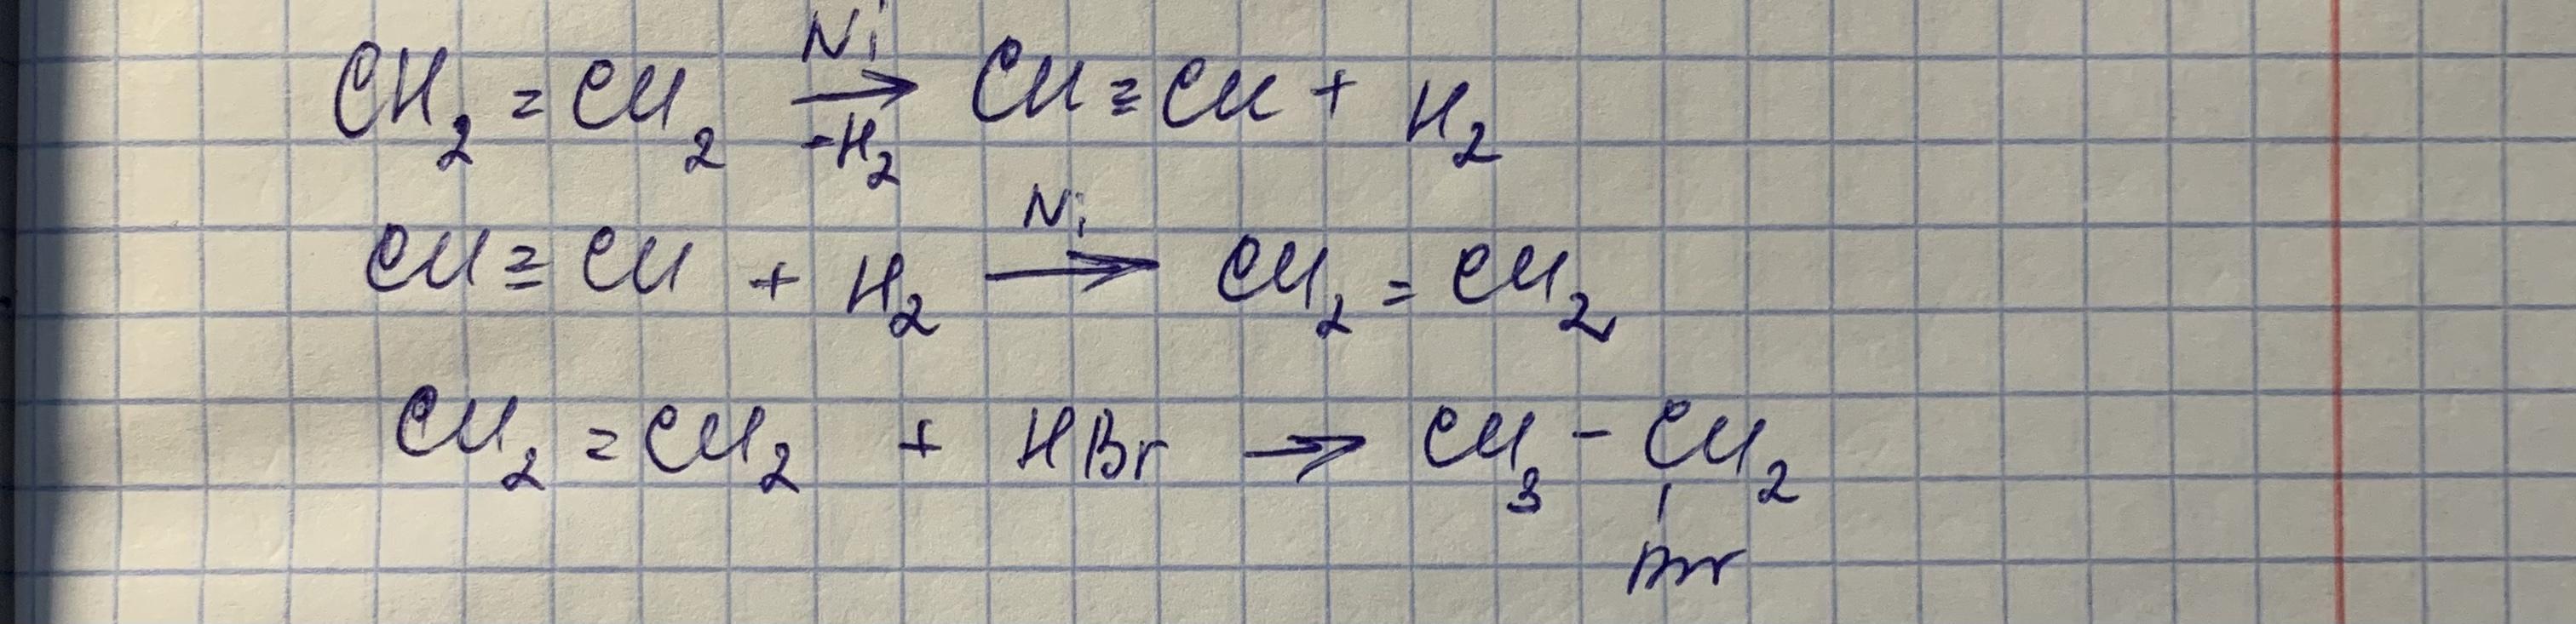 CH₂=CH₂ Ni→-H₂ CH≡CH + H₂
CH≡CH + H₂ Ni→ CH₂=CH₂
CH₂=CH₂ + HBr → CH₃-CH₂
|
Br